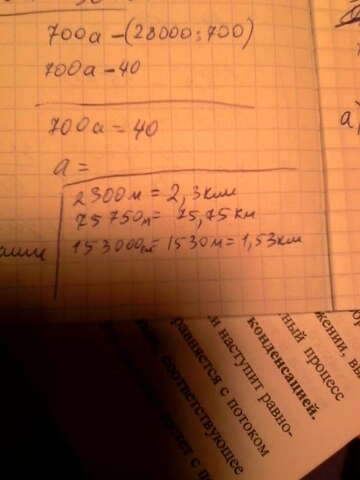 700a - (28000:700)
700a - 40
700a = 40
a =
2300м = 2,3км
75750м = 75,75км
153000см = 1530м = 1,53км
а)
жении, вы
ный процесс
конденсацией.
наступит равно-
равняется с потоком
соответствующее